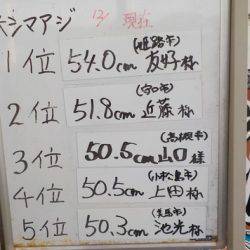 シマアジ 12/ 現在
1位 54.0cm (姫路市) 友好様
2位 51.8cm (守口市) 近藤様
3位 50.5cm (高槻市) 山口様
4位 50.5cm (小松島市) 上田様
5位 50.3cm 池光様